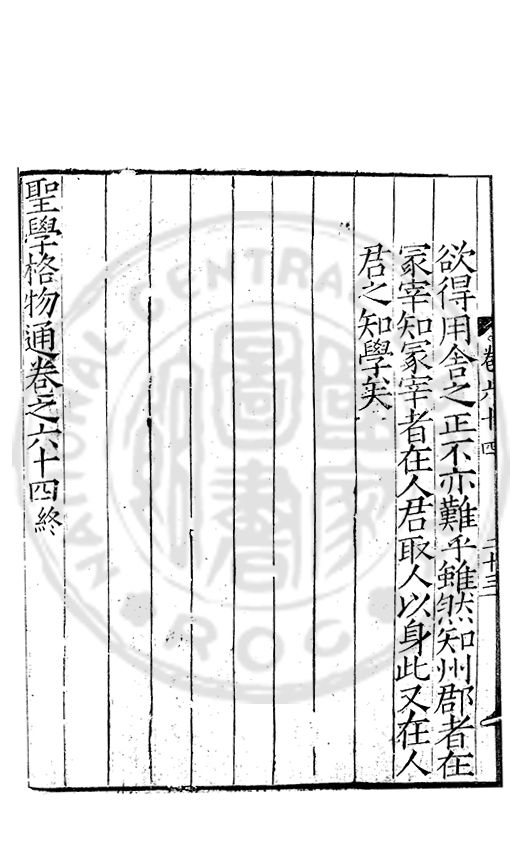 卷六十四 二十三
欲得用舍之正不亦難乎雖然知州郡者在
冡宰知冡宰者在人君取人以身此又在人
君之知學矣
聖學格物通卷之六十四終
NATIONAL CENTRAL
R.O.C.
國家圖書